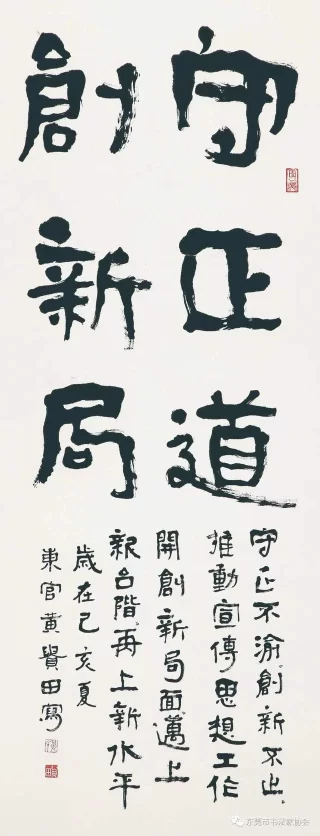 守正道
創新局
守正不渝創新不止
推動宣傳思想工作
開創新局面邁上
新台階再上新水平
歲在己亥夏
東官黄貴田寫
东莞市书法家协会